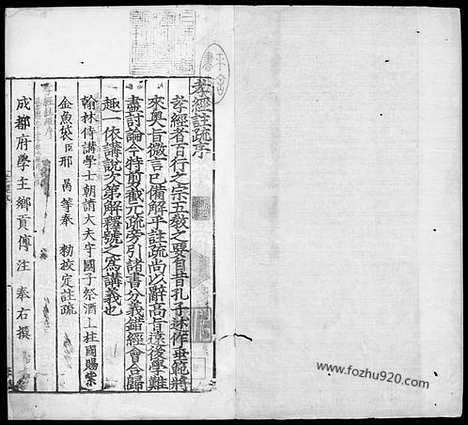 孝經註疏序
孝經者百行之宗五教之要自昔孔子述作垂範將
來奧旨微言已備解乎註疏尚以辭高旨遠後學難
盡討論今特剪截元疏旁引諸書分義錯經會合歸
趣一依講說次第解釋號之為講義也
翰林侍講學士朝請大夫守國子祭酒上柱國賜紫
金魚袋臣邢昺等奉　勑挍定註疏
成都府學主鄉貢傅注　奉右撰
www.fozhu920.com